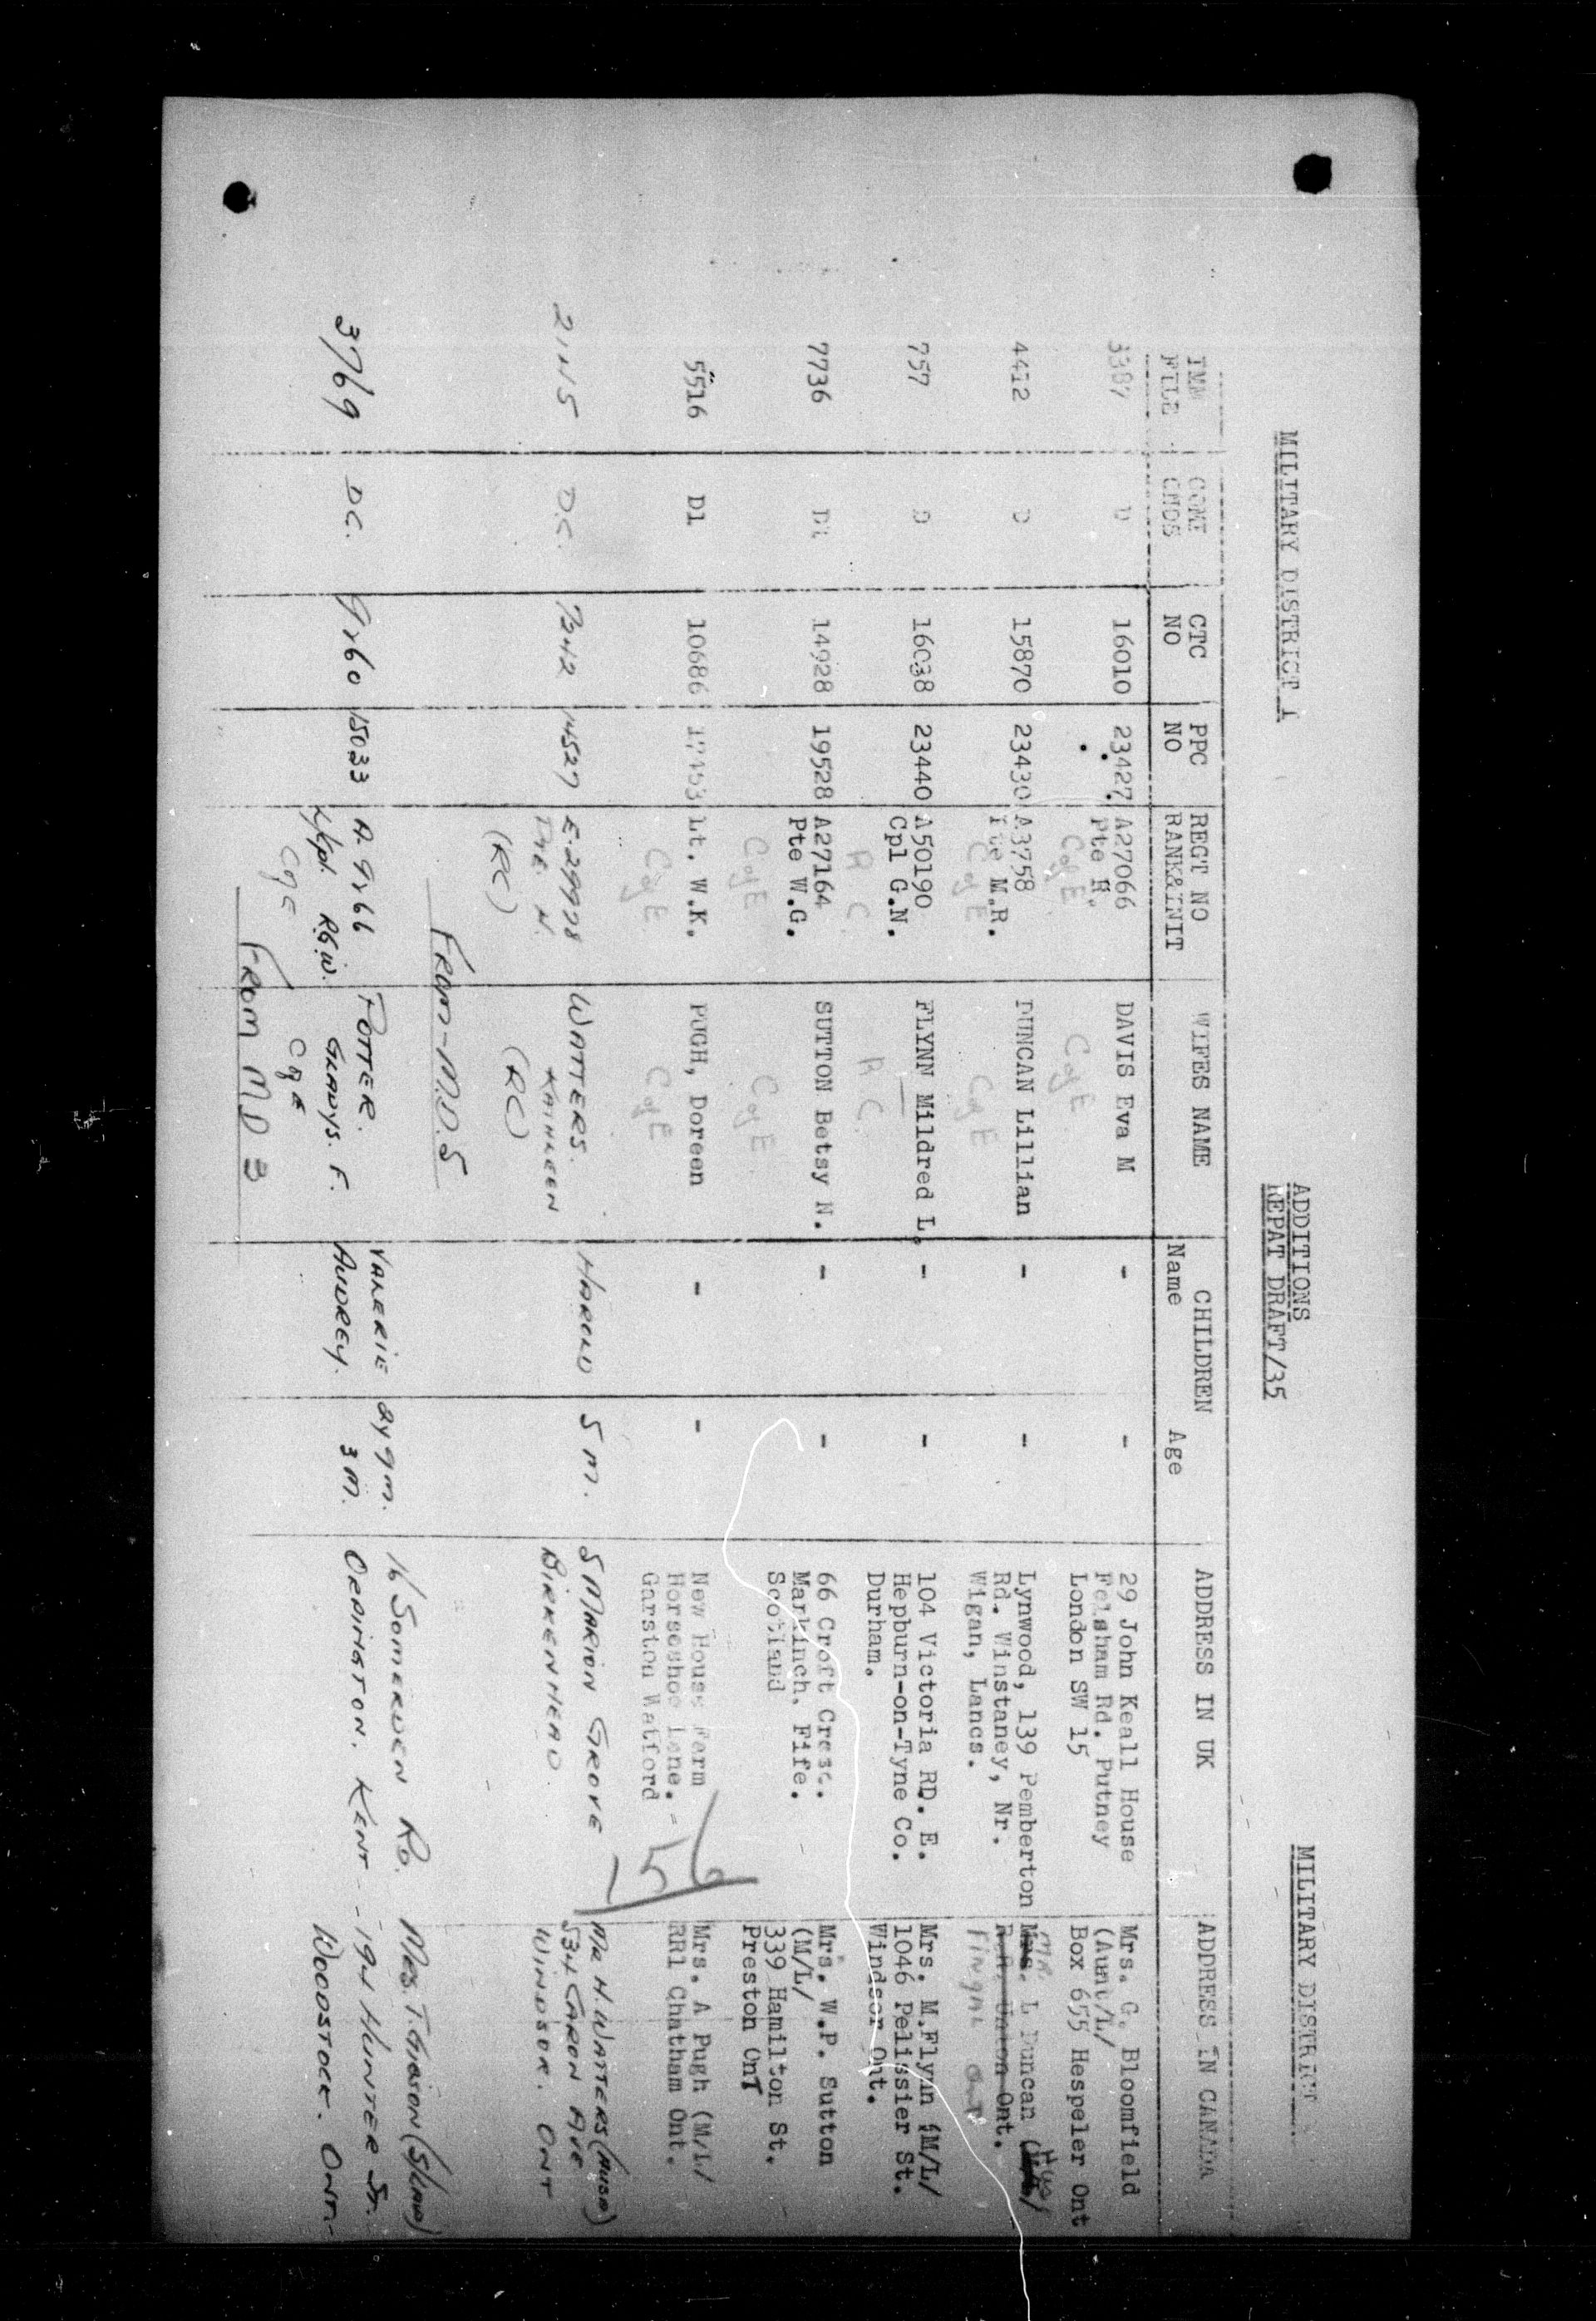 MILITARY DISTRICT 1
ADDITIONS
REPAT DRAFT/35
MILITARY DISTRICT
IMM FILE
COMT CMDS
CTC NO
PPC NO
REGT NO RANK&INIT
WIFES NAME
CHILDREN
Name Age
ADDRESS IN UK
ADDRESS IN CANADA
3387 D 16010 23427 A27066 DAVIS Eva M - - 29 John Keall House Mrs. C. Bloomfield
Pte R. Felsham Rd. Putney (Aunt/L/
C of E C of E London SW 15 Box 655 Hespeler Ont
4412 D 15870 23430 A3758 DUNCAN Lillian - - Lynwood, 139 Pemberton Mrs. L Duncan
Pte M.R. Rd. Winstaney, Nr. R.R. Union Ont.
C of E C of E Wigan, Lancs. Fingal Ont
757 D 16038 23440 A50190 FLYNN Mildred L. - - 104 Victoria RD. E. Mrs. M.Flynn (M/L/
Cpl G.N. Hepburn-on-Tyne Co. 1046 Pelissier St.
R C R.C. Durham. Windsor Ont.
7736 D1 14928 19528 A27164 SUTTON Betsy N. - - 66 Croft Cresc. Mrs. W.P. Sutton
Pte W.G. Markinch. Fife. (M/L/
C of E C of E Scotland 339 Hamilton St.
Preston OnT
5516 D1 10686 17453 Lt. W.K. PUGH, Doreen - - New House Farm Mrs. A Pugh (M/L/
Horseshoe Lane. RR1 Chatham Ont.
C of E C of E Garston Watford
156
D.C. 7342 14527 E.29978 WATTERS. HAROLD 5 M. 5 MARION GROVE MR H. WATTERS
N. KATHLEEN BIRKENHEAD 534 CARON AVE
(RC) (RC) WINDSOR. ONT
FROM-M.D.5
3769 D.C. 15033 POTTER. VALERIE 2Y 9M. 16 SOMERDEN RD. MRS. T. GIBSON
R.G.W. GLADYS. F. AUDREY. 3M. ORPINGTON. KENT 194 HUNTER ST.
C of E C of E WOODSTOCK. ONT.
FROM MD 3